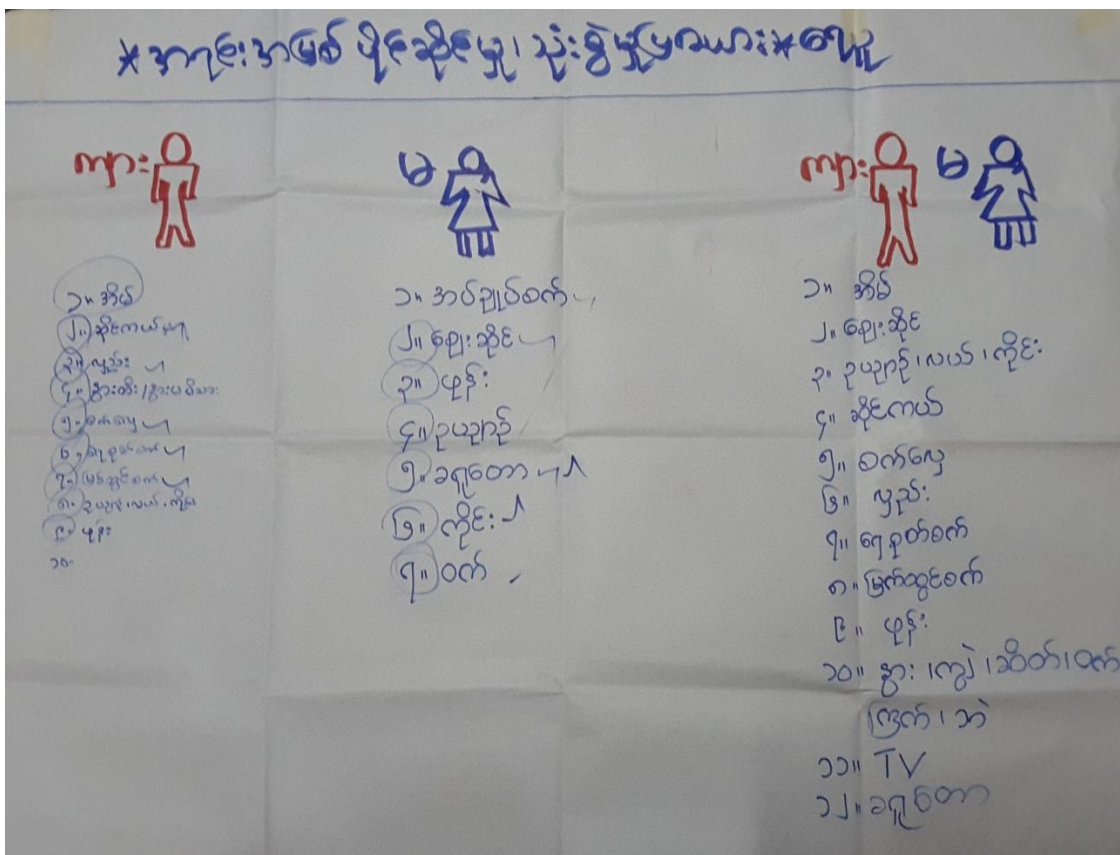 *အရင်းအမြစ် ပိုင်ဆိုင်မှု၊ သုံးစွဲမှုပြဇယား*
ကျား
၁။ အိမ်
၂။ ဆိုင်ကယ်
၃။ လှည်း
၄။
၅။ စက်လှေ
၆။ ရေစုတ်စက်
၇။
၈။ ဥယျာဉ်၊ လယ်၊ ကိုင်း
၉။ ဖုန်း
၁၀။
မ
၁။ အပ်ချုပ်စက်
၂။ ဈေးဆိုင်
၃။ ဖုန်း
၄။ ဥယျာဉ်
၅။ ခရုတောာ
၆။ ကိုင်း
၇။ ဝက်
ကျား မ
၁။ အိမ်
၂။ ဈေးဆိုင်
၃။ ဥယျာဉ်၊ လယ်၊ ကိုင်း
၄။ ဆိုင်ကယ်
၅။ စက်လှေ
၆။ လှည်း
၇။ ရေစုတ်စက်
၈။ မြက်ထွင်စက်
၉။ ဖုန်း
၁၀။ နွား၊ ကျွဲ၊ ဆိတ်၊ ဝက်
ကြက်၊ ဘဲ
၁၁။ TV
၁၂။